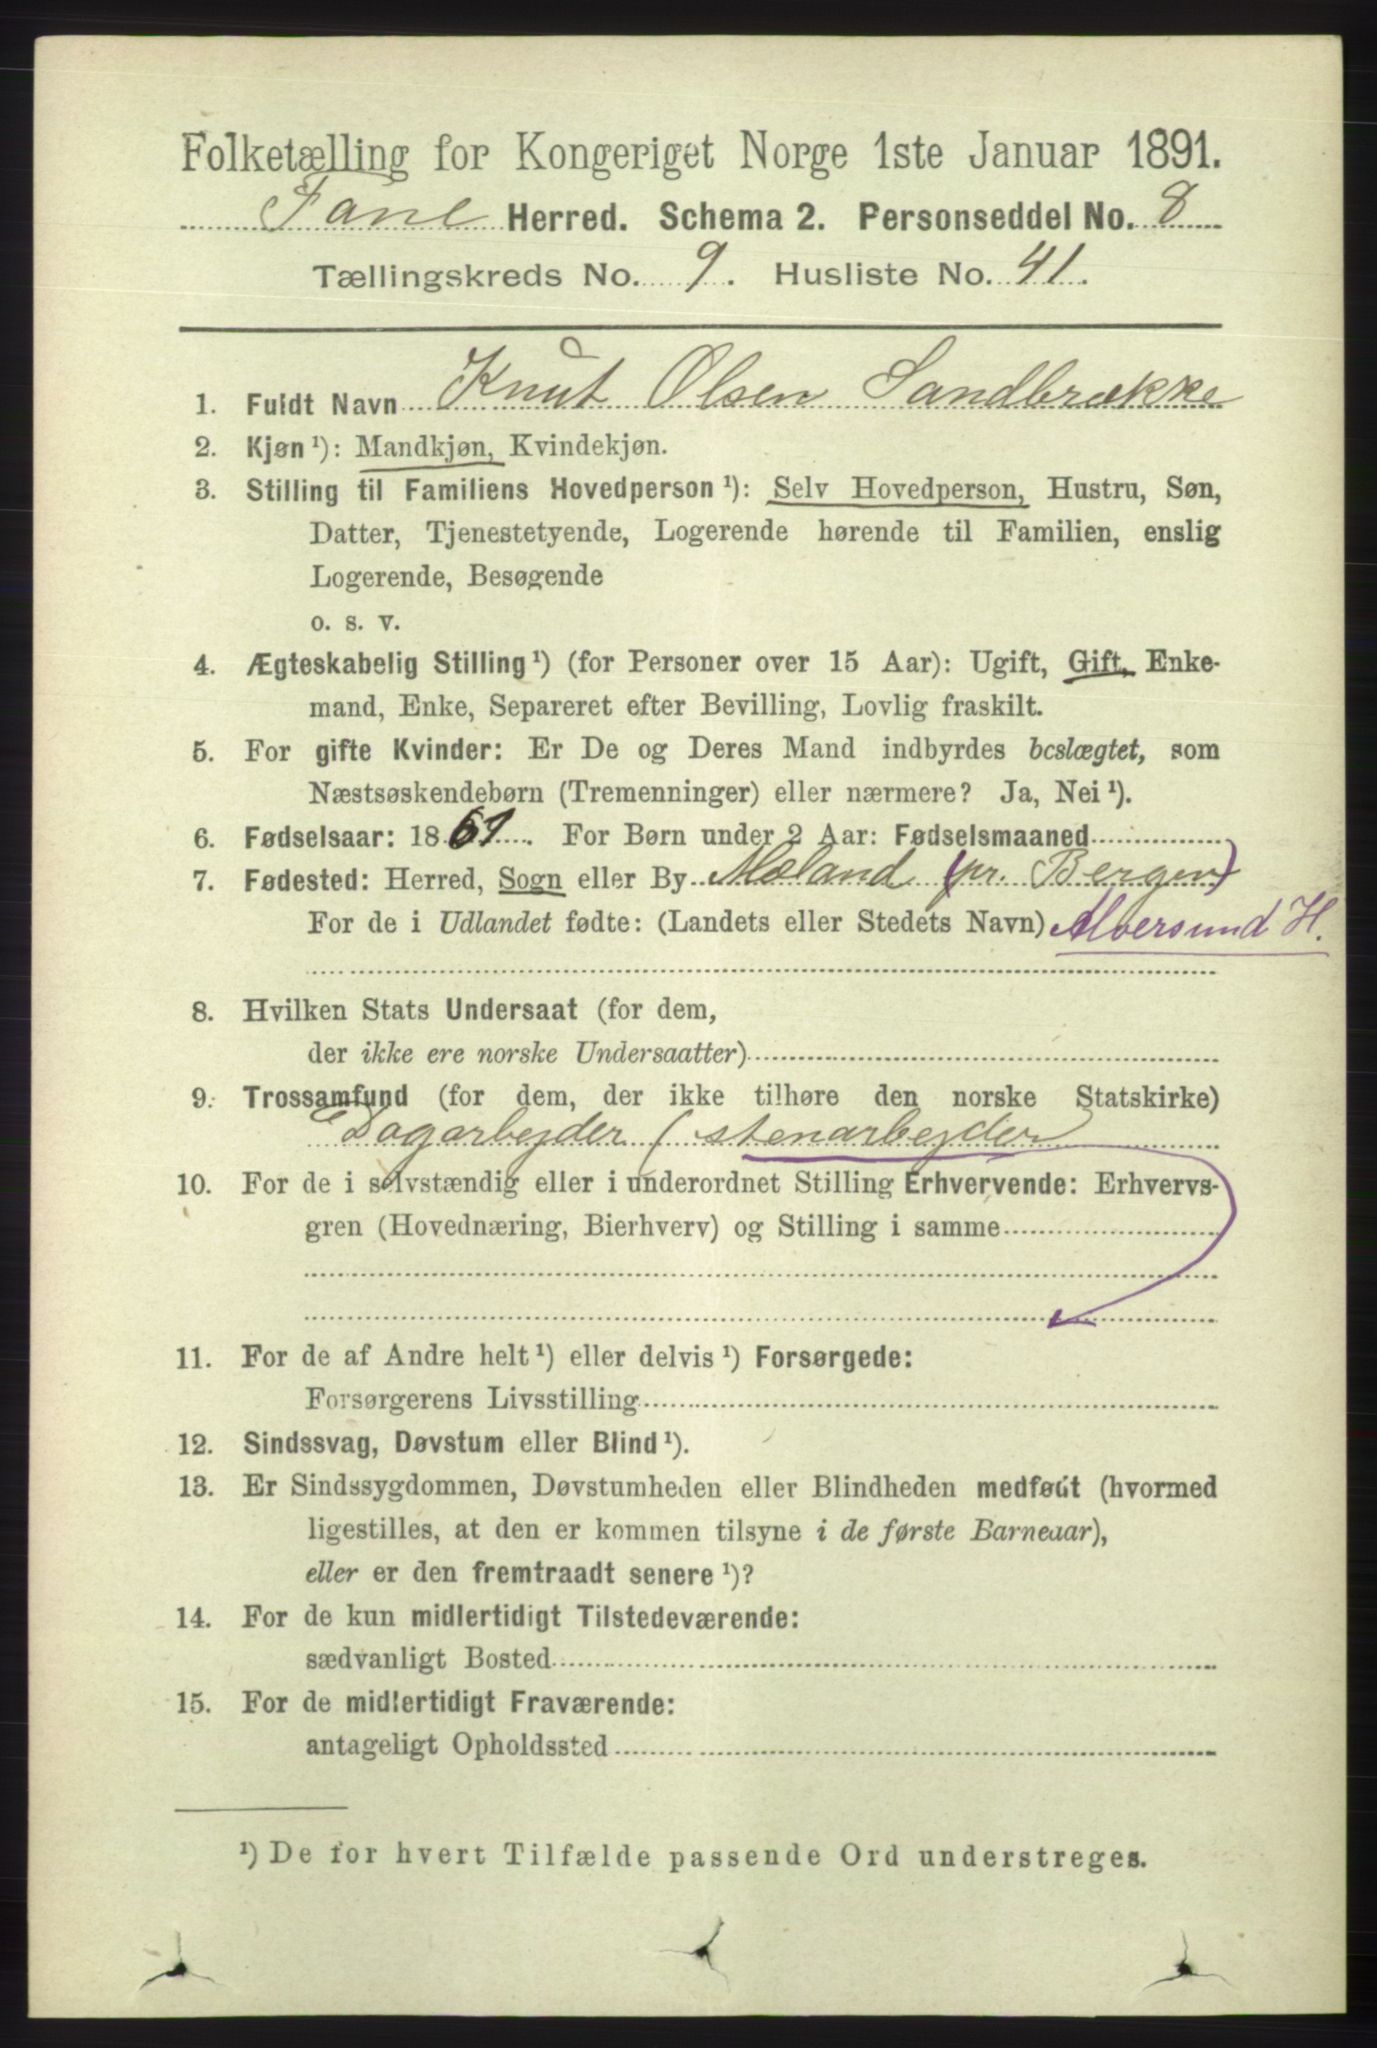 Folketælling for Kongeriget Norge 1ste Januar 1891.
Fane Herred. Schema 2. Personseddel No. 8
Tællingskreds No. 9. Husliste No. 41.
1. Fuldt Navn Knut Olsen Sandbrække
2. Kjøn¹): Mandkjøn, Kvindekjøn.
3. Stilling til Familiens Hovedperson¹): Selv Hovedperson, Hustru, Søn,
Datter, Tjenestetyende, Logerende hørende til Familien, enslig
Logerende, Besøgende
o. s. v.
4. Ægteskabelig Stilling¹) (for Personer over 15 Aar): Ugift, Gift, Enke-
mand, Enke, Separeret efter Bevilling, Lovlig fraskilt.
5. For gifte Kvinder: Er De og Deres Mand indbyrdes beslægtet, som
Næstsøskendebørn (Tremenninger) eller nærmere? Ja, Nei¹).
6. Fødselsaar: 1861. For Børn under 2 Aar: Fødselsmaaned
7. Fødested: Herred, Sogn eller By Mæland (pr. Bergen)
For de i Udlandet fødte: (Landets eller Stedets Navn) Alversund H.
8. Hvilken Stats Undersaat (for dem,
der ikke ere norske Undersaatter)
9. Trossamfund (for dem, der ikke tilhøre den norske Statskirke)
Dagarbejder (stenarbejder
10. For de i selvstændig eller i underordnet Stilling Erhvervende: Erhvervs-
gren (Hovednæring, Bierhverv) og Stilling i samme
11. For de af Andre helt¹) eller delvis¹) Forsørgede:
Forsørgerens Livsstilling
12. Sindssvag, Døvstum eller Blind¹).
13. Er Sindssygdommen, Døvstumheden eller Blindheden medfødt (hvormed
ligestilles, at den er kommen tilsyne i de første Barneaar),
eller er den fremtraadt senere¹)?
14. For de kun midlertidigt Tilstedeværende:
sædvanligt Bosted
15. For de midlertidigt Fraværende:
antageligt Opholdssted
¹) De for hvert Tilfælde passende Ord understreges.